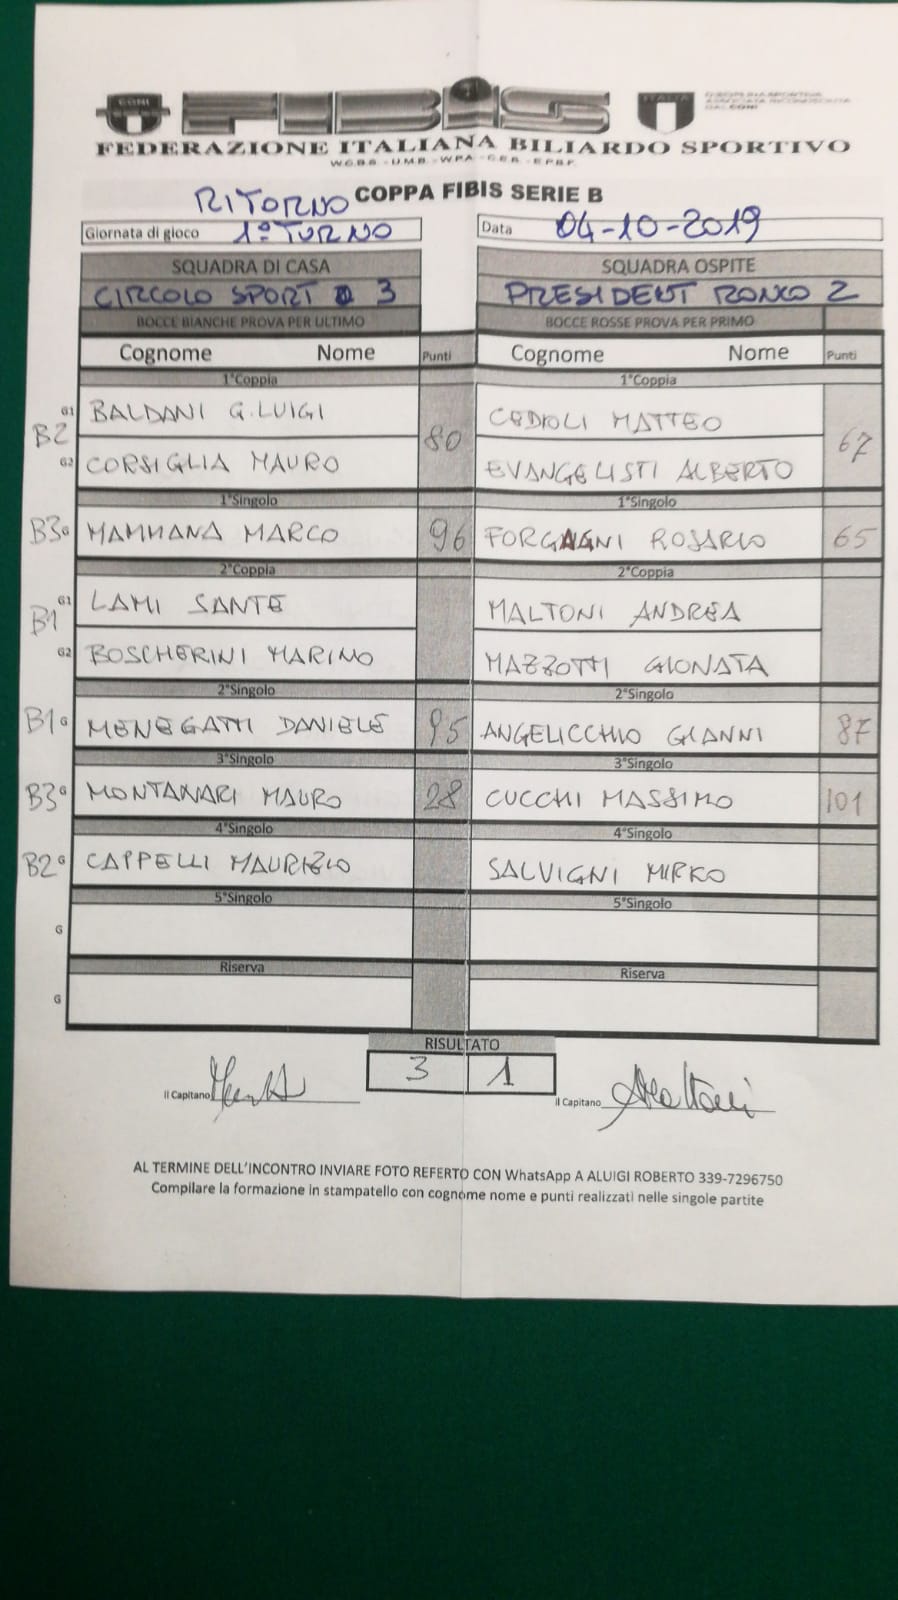 CONI
FIBIS
ITALIA
FEDERAZIONE ITALIANA BILIARDO SPORTIVO
RITORNO COPPA FIBIS SERIE B
Giornata di gioco 1° TURNO Data 04-10-2019
SQUADRA DI CASA SQUADRA OSPITE
CIRCOLO SPORT 3 PRESIDENT RONCO 2
BOCCE BIANCHE PROVA PER ULTIMO BOCCE ROSSE PROVA PER PRIMO
Cognome Nome Punti Cognome Nome Punti
1°Coppia 1°Coppia
B2 G1 BALDANI G.LUIGI 80 CEDIOLI MATTEO 67
G2 CORSIGLIA MAURO EVANGELISTI ALBERTO
1°Singolo 1°Singolo
B3 G MAMMANA MARCO 96 FORGAGNI ROSARIO 65
2°Coppia 2°Coppia
B1 G1 LAMI SANTE MALTONI ANDREA
G2 BOSCHERINI MARINO MAZZOTTI GIONATA
2°Singolo 2°Singolo
B1 G MENEGATTI DANIELE 95 ANGELICCHIO GIANNI 87
3°Singolo 3°Singolo
B3 G MONTANARI MAURO 28 CUCCHI MASSIMO 101
4°Singolo 4°Singolo
B2 G CAPPELLI MAURIZIO SALVIGNI MIRKO
5°Singolo 5°Singolo
G
Riserva Riserva
G
RISULTATO
3 1
Il Capitano il Capitano
AL TERMINE DELL'INCONTRO INVIARE FOTO REFERTO CON WhatsApp A ALUIGI ROBERTO 339-7296750
Compilare la formazione in stampatello con cognome nome e punti realizzati nelle singole partite